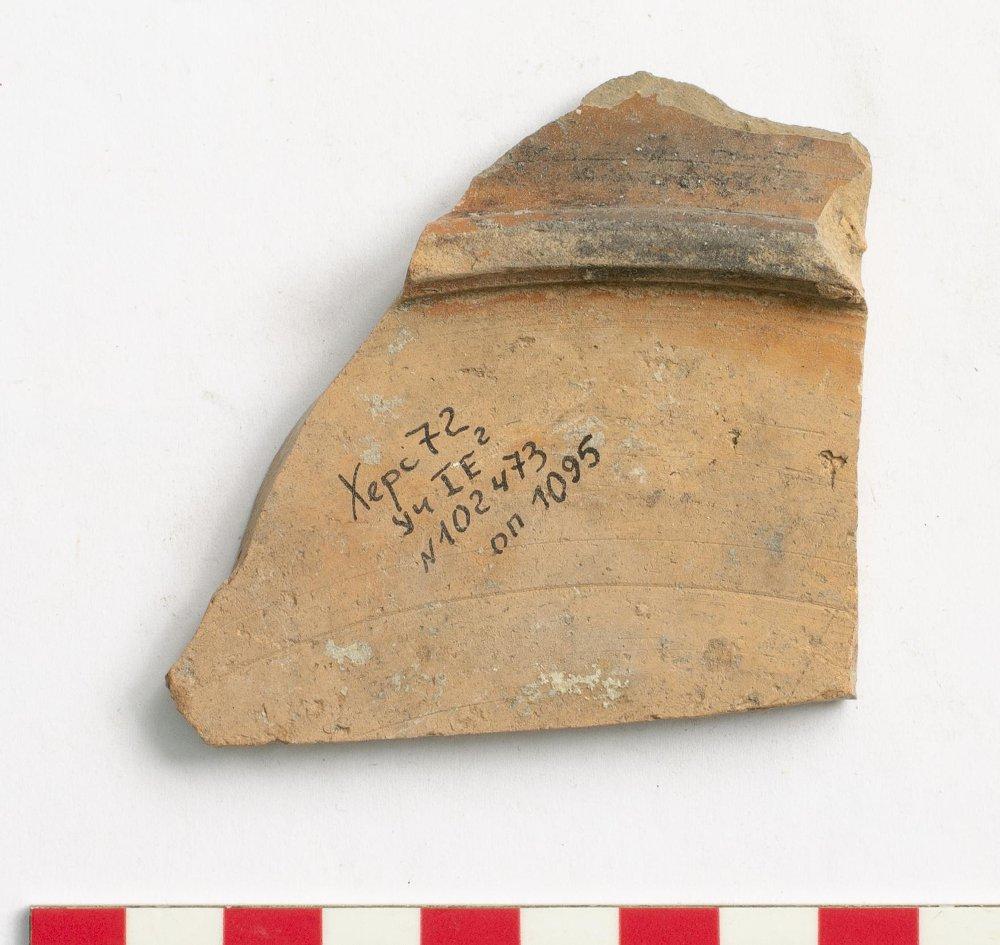 Херс 72
Уч I Е 2
N 102473
оп 1095